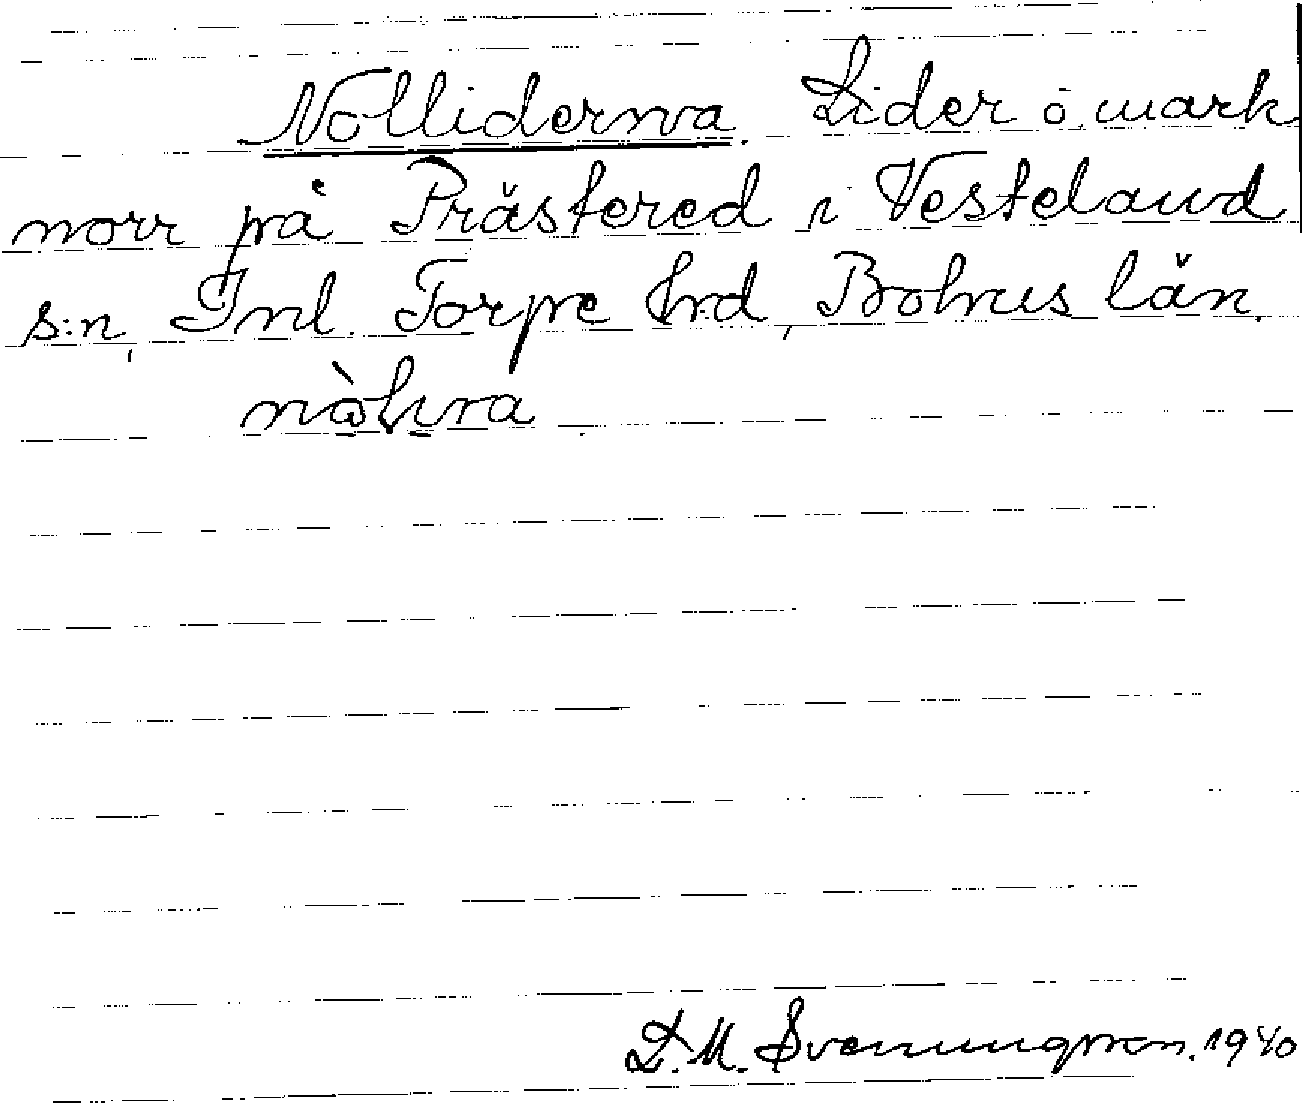 Nolliderna. Lider o. mark
norr på Prästered i Vesteland
s:n, Inl. Torpe hrd, Bohus län.
D. M. Svenungsson. 1940